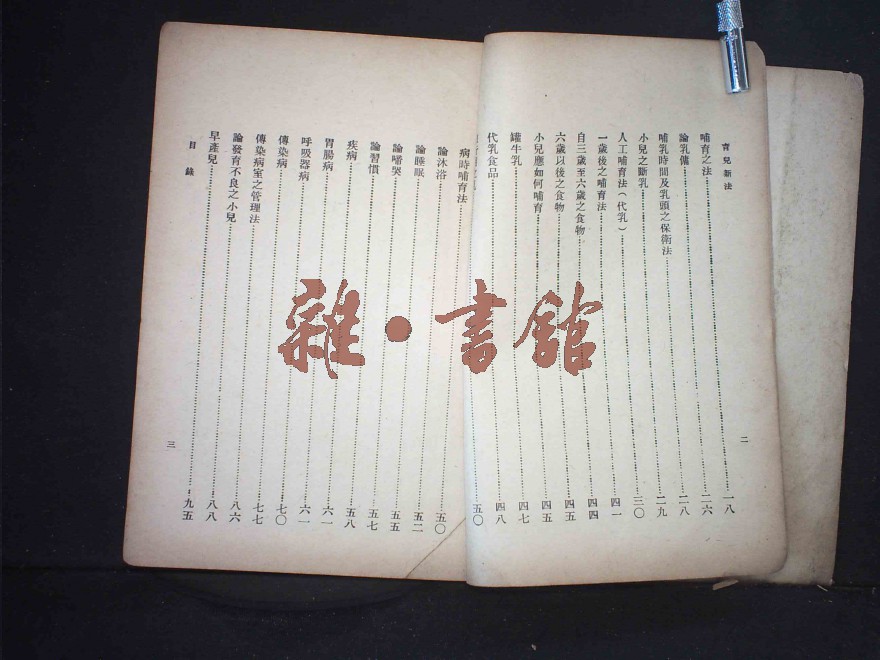 育兒新法
哺育之法……一八
論乳傭……二六
哺乳時間及乳頭之保衛法……二八
小兒之斷乳……二九
人工哺育法(代乳)……三〇
一歲後之哺育法……四一
自三歲至六歲之食物……四四
六歲以後之食物……四五
小兒應如何哺育……四五
罐牛乳……四七
代乳食品……四八
五〇
二
病時哺育法……五〇
論沐浴……五二
論睡眠……五五
論啼哭……五七
論習慣……五八
疾病……六一
胃腸病……六一
呼吸器病……七〇
傳染病……七七
傳染病室之管理法……八六
論發育不良之小兒……八八
早產兒……九五
目錄
三
雜·書館